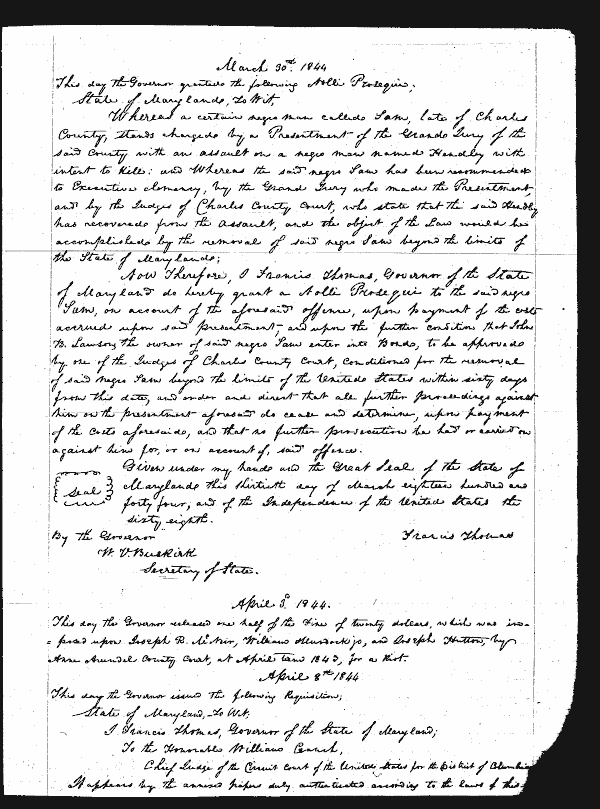 March 30th. 1844
This day the Governor granted the following Nolli Prosequi;
State of Maryland, To Wit,
Whereas a certain negro man called Sam, late of Charles
County, stands charged by a Presentment of the Grand Jury of the
said County with an assault on a negro man named Hendly with
intent to Kill: and Whereas the said negro Sam has been recommended
to Executive clemency, by the Grand Jury who made the Presentment,
and by the Judges of Charles County Court, who state that the said Hendly
has recovered from the assault, and the object of the Law would be
accomplished by the removal of said negro Sam beyond the limits of
the State of Maryland;
Now Therefore, I Francis Thomas, Governor of the State
of Maryland do hereby grant a Nolli Prosequi to the said negro
Sam, on account of the aforesaid offence, upon payment of the costs
accrued upon said presentment, and upon the further condition that John
B. Lawson, the owner of said negro Sam enter into Bond, to be approved
by one of the Judges of Charles County Court, conditioned for the removal
of said negro Sam beyond the limits of the United States within sixty days
from this date, and order and direct that all further proceedings against
him on the presentment aforesaid do cease and determine, upon payment
of the costs aforesaid, and that no further prosecution be had or carried on
against him for, or on account of, said offence.
Given under my hand and the Great Seal of the State of
Seal Maryland this thirtieth day of March eighteen hundred and
forty four, and of the Independence of the United States the
sixty eighth.
By the Governor Francis Thomas
W. V. Buskirk
Secretary of State.
April 3d. 1844.
This day the Governor released one half of the Fine of twenty dollars, which was im-
=posed upon Joseph R. McNeir, William Murdock jr, and Joseph Hutton, by
Anne Arundel County Court, at April term 1843, for a Riot.
April 8th 1844
This day the Governor issued the following Requisition;
State of Maryland, To Wit;
I Francis Thomas, Governor of the State of Maryland;
To the Honorable William Cranch,
Chief Judge of the Circuit Court of the United States for the District of Columbia
It appears by the annexed papers duly authenticated according to the laws of this